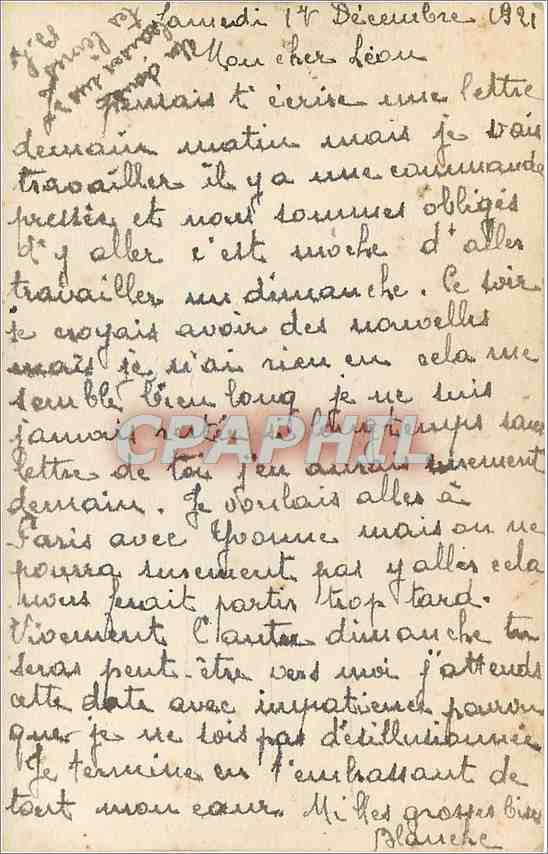 Samedi 17 Décembre 1921
Mon cher Léon
Pensais t'écrire une lettre
demain matin mais je vais
travailler il y a une commande
pressée et nous sommes obligés
d'y aller c'est moche d'aller
travailler un dimanche. Ce soir
je croyais avoir des nouvelles
mais je n'ai rien eu cela me
semble bien long je ne suis
jamais restée si longtemps sans
lettre de toi j'en aurai surement
demain. Je voulais aller à
Paris avec Yvonne mais on ne
pourra surement pas y aller cela
nous ferait partir trop tard.
Vivement l'autre dimanche tu
seras peut-être vers moi j'attends
cette date avec impatience pourvu
que je ne sois pas désillusionnée
Je termine en t'embrassant de
tout mon cœur. Milles grosses bises
Blanche
CPAPHIL